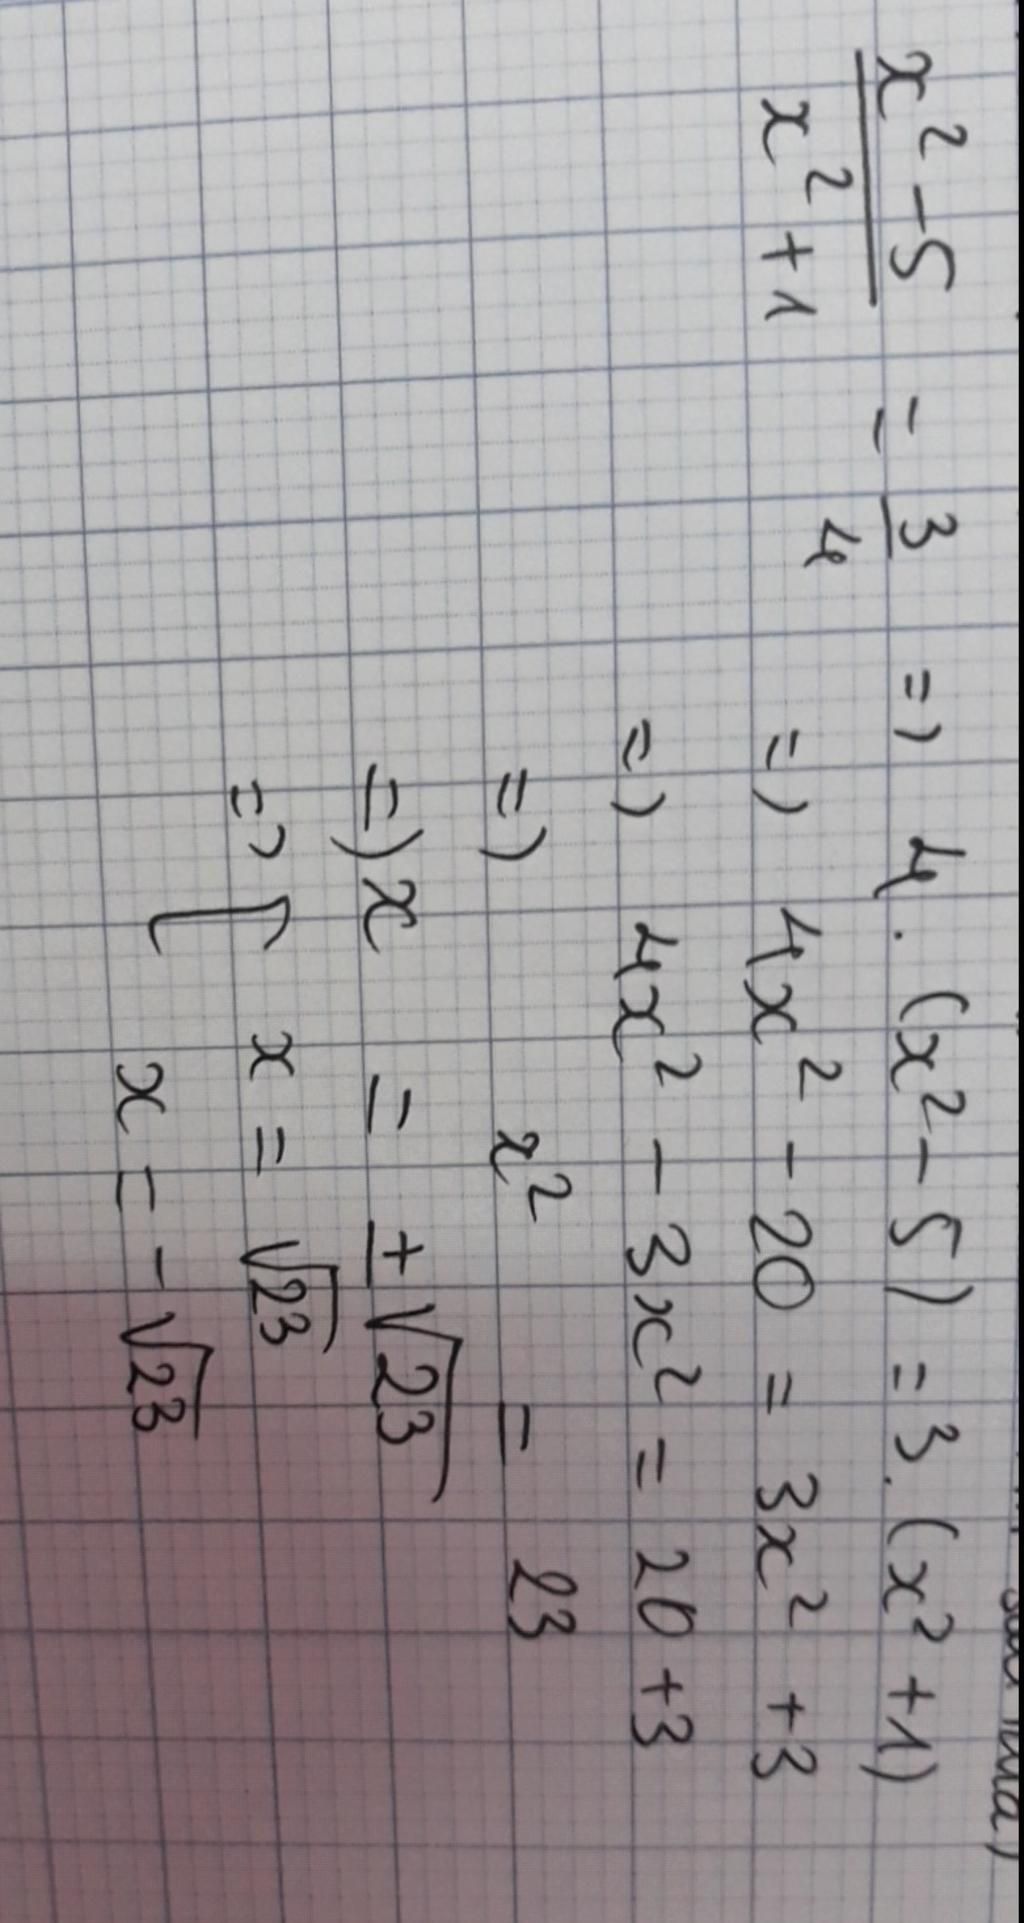 x² - 5 / x² + 1 = 3/4 => 4 . (x² - 5) = 3 . (x² + 1)
=> 4x² - 20 = 3x² + 3
=> 4x² - 3x² = 20 + 3
=> x² = 23
=> x = ± √23
=> [ x = √23
x = - √23